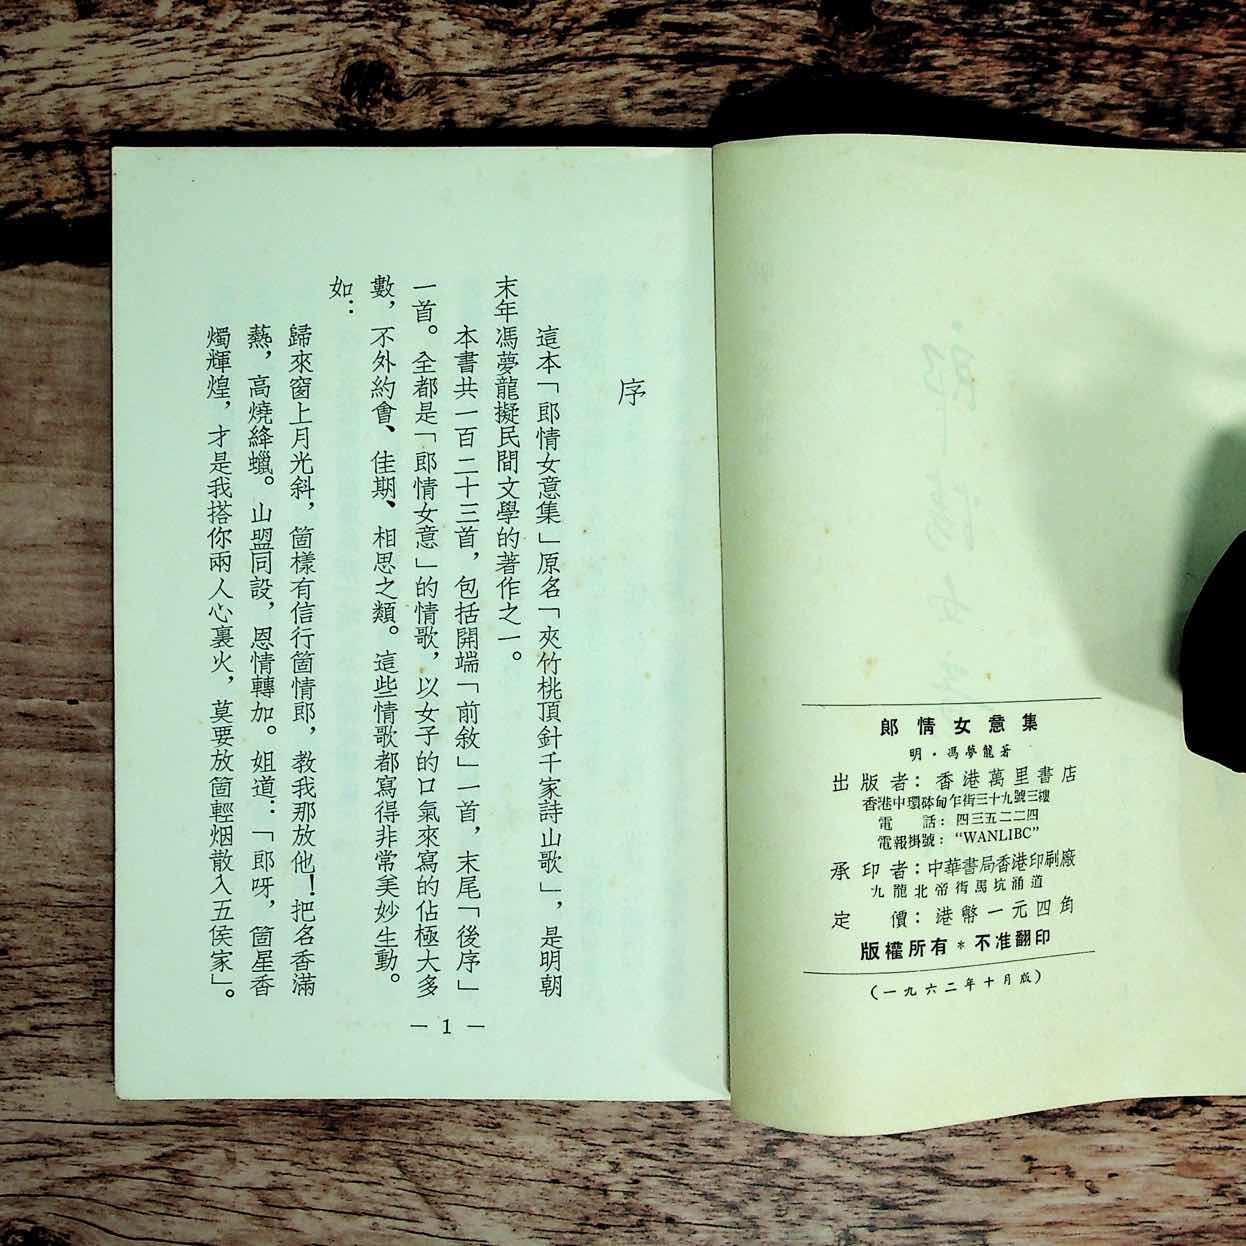 郎情女意集
明·馮夢龍著
出版者：香港萬里書店
香港中環砵甸乍街三十九號三樓
電　話：四三五二二四
電報掛號：“WANLIBC”
承印者：中華書局香港印刷廠
九龍北帝街馬坑涌道
定　價：港幣一元四角
版權所有＊不准翻印
（一九六二年十月版）
序
這本「郎情女意集」原名「夾竹桃頂針千家詩山歌」，是明朝
末年馮夢龍擬民間文學的著作之一。
本書共一百二十三首，包括開端「前敘」一首，末尾「後序」
一首。全都是「郎情女意」的情歌，以女子的口氣來寫的佔極大多
數，不外約會、佳期、相思之類。這些情歌都寫得非常美妙生動。
如：
歸來窗上月光斜，箇樣有信行箇情郎，教我那放他！把名香滿
爇，高燒絳蠟。山盟同設，恩情轉加。姐道：「郎呀，箇星香
燭輝煌，才是我搭你兩人心裏火，莫要放箇輕烟散入五侯家」。
— 1 —